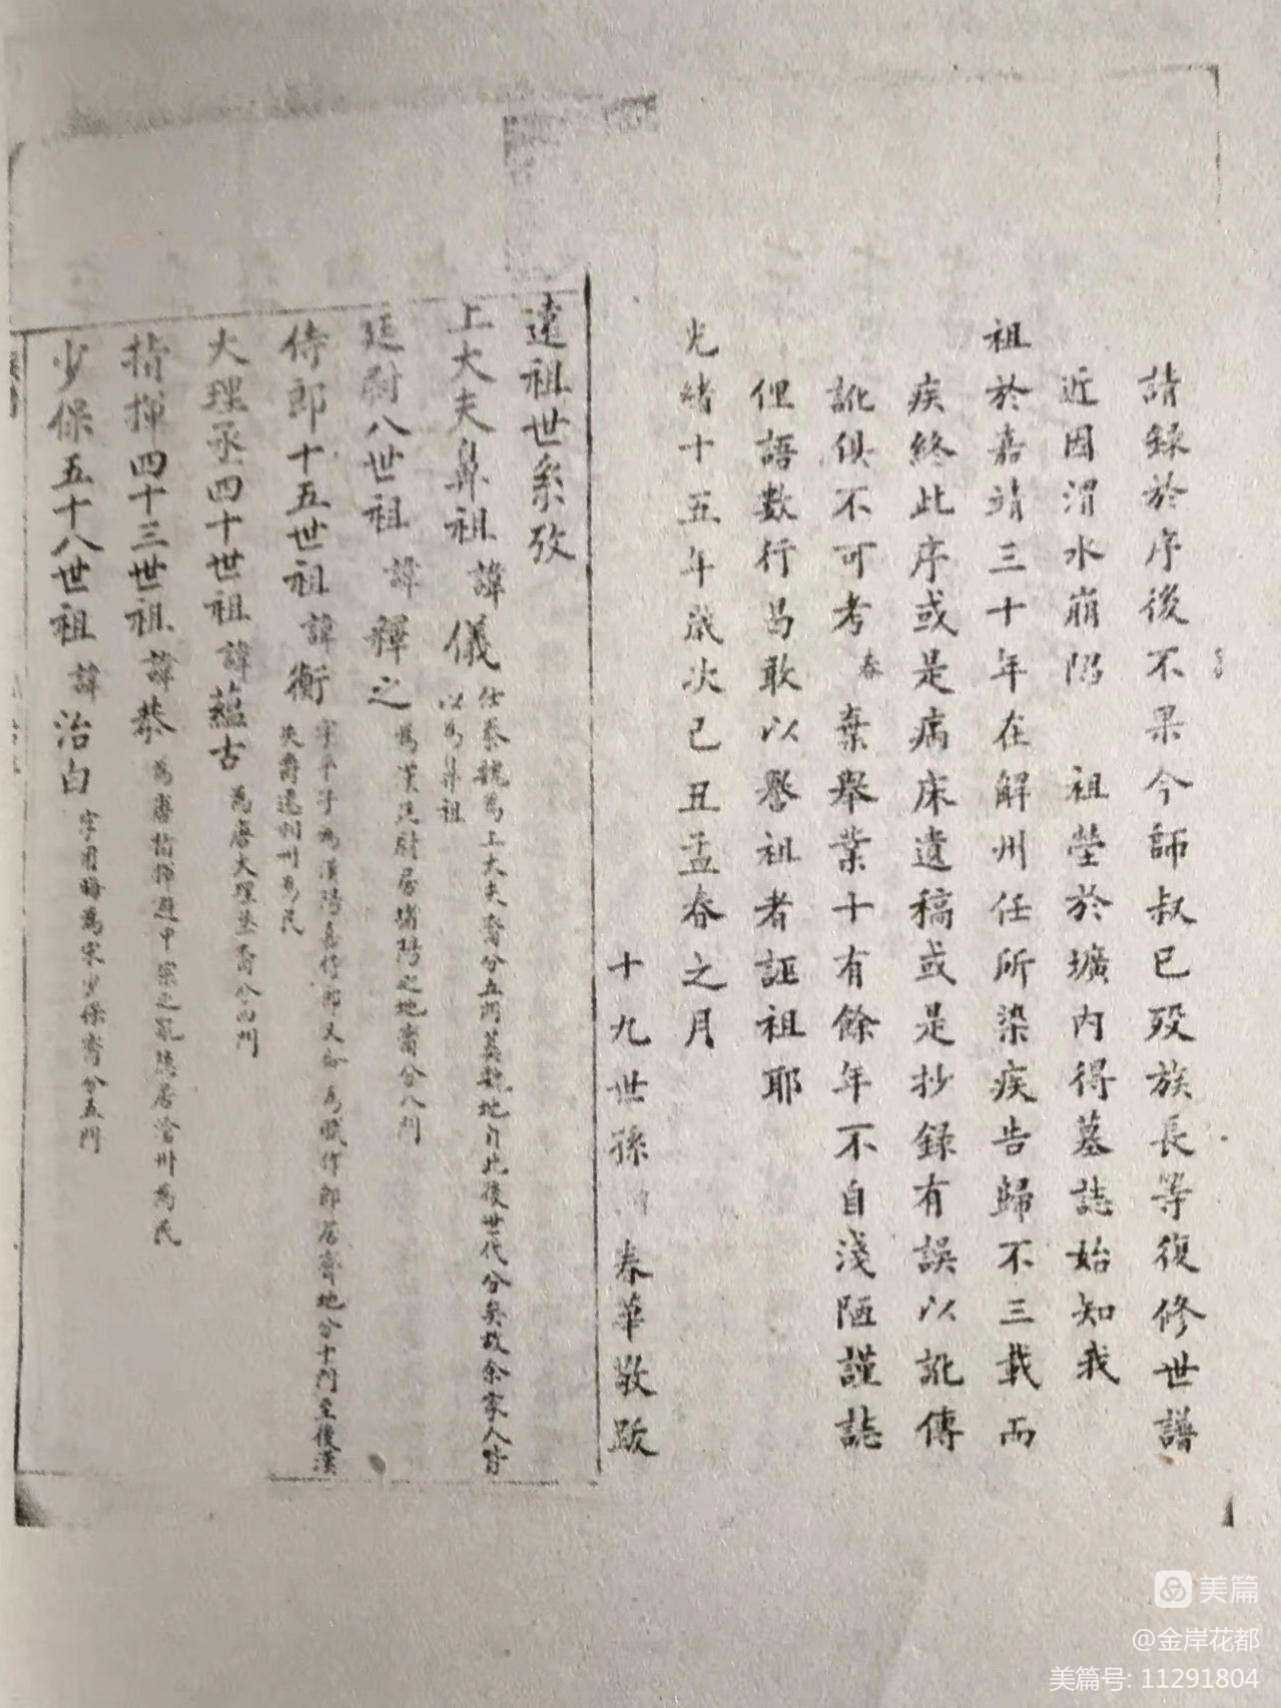 請錄於序後不果今師叔已歿族長等復修世譜
近因渭水崩陷 祖塋於壙內得墓誌始知我
祖於嘉靖三十年在解州任所染疾告歸不三載而
疾終此序或是病床遺稿或是抄錄有誤以訛傳
訛俱不可考春棄舉業十有餘年不自淺陋謹誌
俚語數行曷敢以譽祖者誣祖耶
光緒十五年歲次己丑孟春之月
十九世孫 春華敬跋
遠祖世系攷
上大夫鼻祖諱儀 仕秦魏為上大夫裔分五門葬魏地自此後世代分矣故余家人皆
以為鼻祖
廷尉八世祖諱釋之 為漢廷尉居堵陽之地裔分八門
侍郎十五世祖諱衡 字平子為漢陽嘉侍郎又為職侍郎居齊地分十門至後漢
失爵遷荆州為民
大理丞四十世祖諱蘊古 為唐大理丞裔分四門
指揮四十三世祖諱恭 為唐指揮避中宗之亂隱居滄州為民
少保五十八世祖諱治白 字用晦為宋少保裔分五門
美篇
@金岸花都
美篇号: 11291804